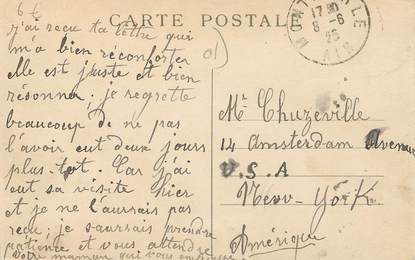 CARTE POSTALE
6 t
j'ai reçu ta lettre qui
m'a bien réconforter
elle est juste et bien
résonner, je regrette
beaucoup de ne pas
l'avoir eut deux jours
plus-tot. Car j'ai
eut sa visite hier
et je ne l'aurais pas
reçu, je saurais prendre
patience et vous attendre
Votre maman qui vous embrasse
Mr Chuzeville
14 Amsterdam Avenue
U.S.A
New-York
Amérique
17
6 -6
AIN